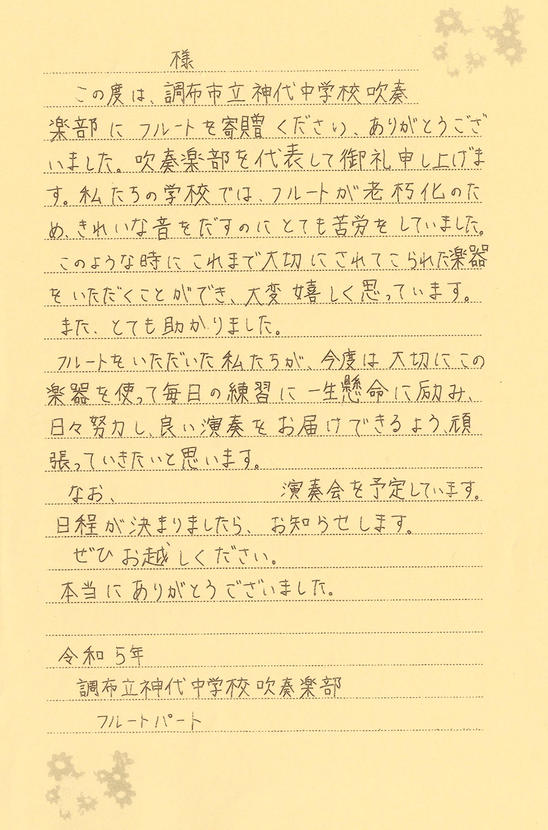 様
この度は、調布市立神代中学校吹奏
楽部にフルートを寄贈ください、ありがとうござ
いました。吹奏楽部を代表して御礼申し上げま
す。私たちの学校では、フルートが老朽化のた
め、きれいな音をだすのにとても苦労をしていました。
このような時にこれまで大切にされてこられた楽器
をいただくことができ、大変嬉しく思っています。
また、とても助かりました。
フルートをいただいた私たちが、今度は大切にこの
楽器を使って毎日の練習に一生懸命に励み、
日々努力し、良い演奏をお届けできるよう、頑
張っていきたいと思います。
なお、 演奏会を予定しています。
日程が決まりましたら、お知らせします。
ぜひお越しください。
本当にありがとうございました。
令和5年
調布立神代中学校吹奏楽部
フルートパート